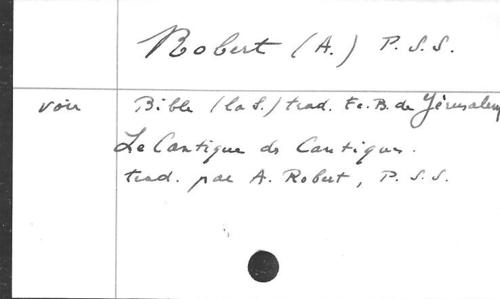 Robert (A.) P.S.S.
voir Bible (la S.) trad. Ec. B. de Jérusalem
Le Cantique des Cantiques.
trad. par A. Robert, P.S.S.